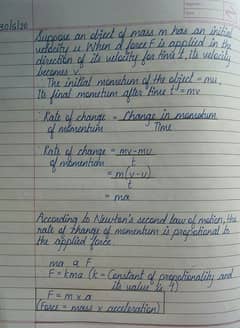 30/6/20
Suppose an object of mass m has an initial
velocity u. When a force F is applied in the
direction of its velocity for time t, its velocity
becomes v.
The initial momentum of the object = mu.
Its final momentum after time t = mv
Rate of change = Change in momentum
of momentum Time
Rate of change = mv-mu
of momentum t
= m(v-u)
t
= ma
According to Newton's second law of motion, this
rate of change of momentum is proportional to
the applied force
ma α F
F = kma (k = Constant of propotionality and
its value is 1)
F = m x a
(Force = mass x acceleration)